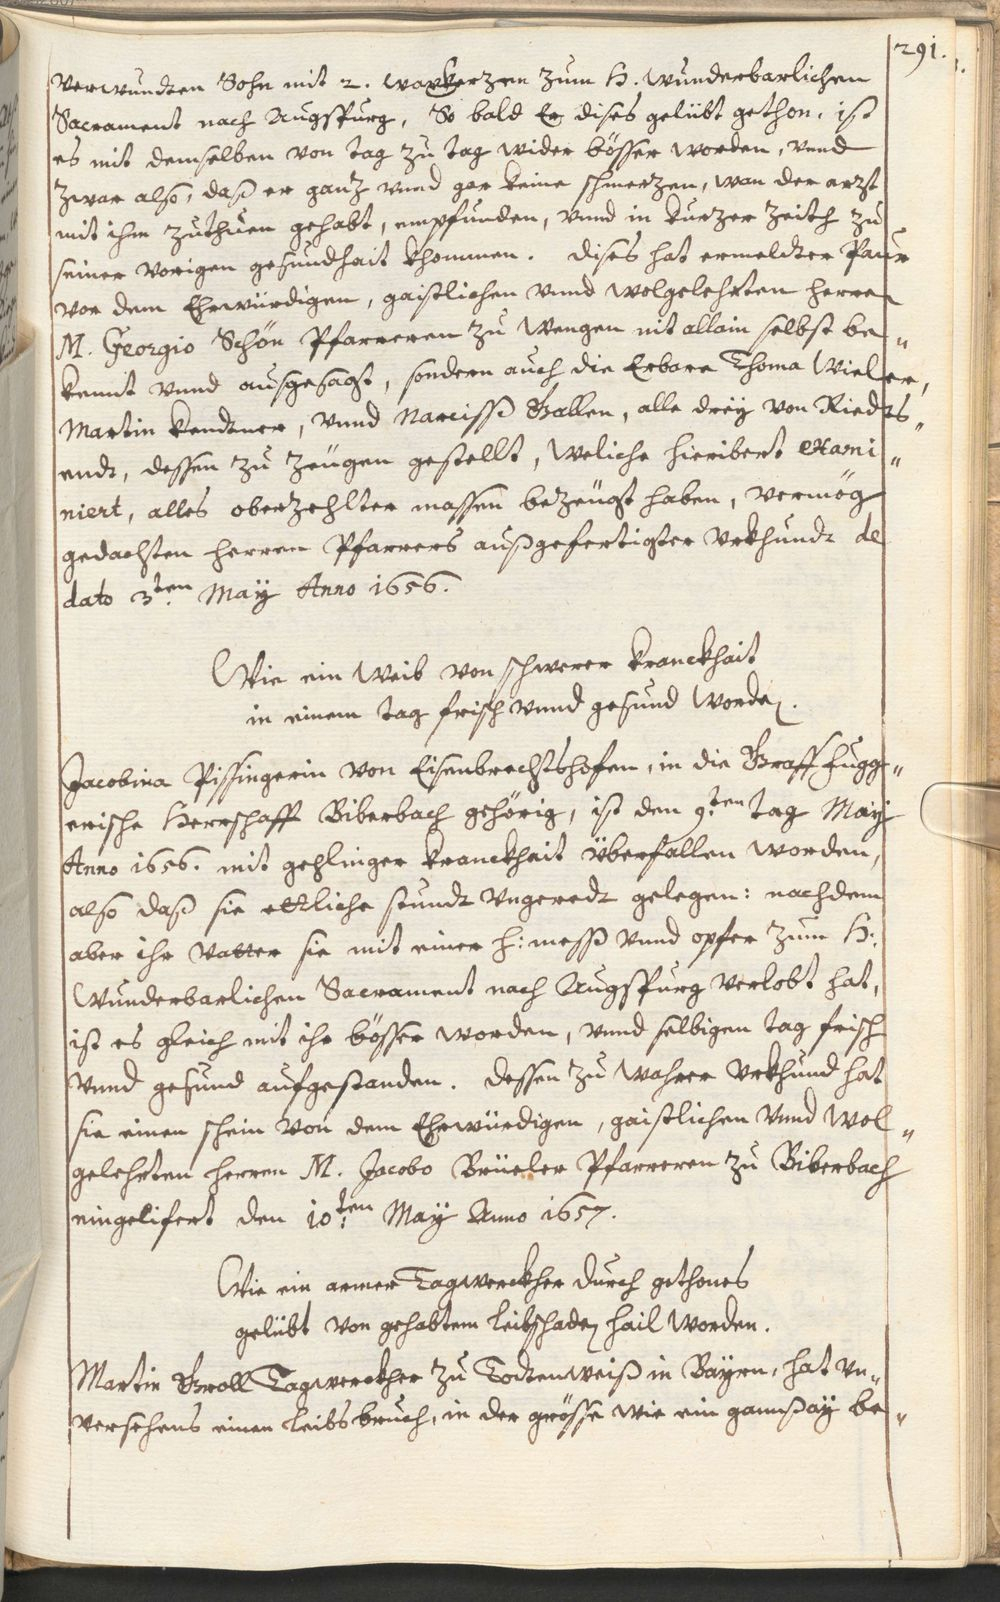 291.
verwundten Sohn mit 2. waxkerzen zum H. wunderbarlichen
Sacrament nach Augspurg, So bald Er dises gelübt gethon, ist
es mit demselben von tag zu tag wider bösser worden, vnnd
zwar also, daß er ganz vnnd gar keine schmerzen, wan der arzt
mit ihm zuthuen gehabt, empfunden, vnnd in kurzer Zeitth zu
seiner vorigen gesundhait khommen. Dises hat ermeldter Paur
vor dem Ehrwürdigen, gaistlichen vnnd wolgelehrten herren
M. Georgio Schön Pfarreren zu Wengen nit allain selbst be„
kennt vnnd ausgesagt, sondern auch die Erbare Thoma Wieler,
Martin Kendtner, vnnd Narcissß Ballen, alle dreÿ von Riedts„
endt, dessen zu zeugen gestellt, welche hieribert exami„
niert, alles oberzehlter massen bezeügt haben, vermög
gedachten herren Pfarrers außgefertigter Vrkhundt de
dato 3ten May Anno 1656.
Wie ein Weib von schwerer kranckhait
in einem tag frisch vnnd gesund worden.
Jacobina Pissingerin von Eisenbrechtshofen, in die Graff Fugg„
erische Herrschafft Biberbach gehörig, ist den 9ten tag Maÿ
Anno 1656. mit gehlinger kranckhait überfallen worden,
also daß sie ettliche stundt vngeredt gelegen: nachdem
aber ihr vatter sie mit einer h: mess vnnd opfer zum H.
Wunderbarlichen Sacrament nach Augspurg verlobt hat,
ist es gleich mit ihr bösser worden, vnnd selbigen tag frisch
vnnd gesund aufgestanden. Dessen zu wahrer Vrkhund hat
sie einen schein von dem Ehrwürdigen, gaistlichen vnnd wol„
gelehrten herren M. Jacobo Brüeler Pfarreren zu Biberbach
eingelifert den 10ten Maÿ Anno 1657.
Wie ein armer Tagwerckher durch gethones
gelübt von gehabtem leibschaden hail worden.
Martin Groll Tagwerckher zu Todtenweiß in Baÿrn, hat vn„
versehens einen leibsbruch, in der grösse wie ein gannßaÿ be„